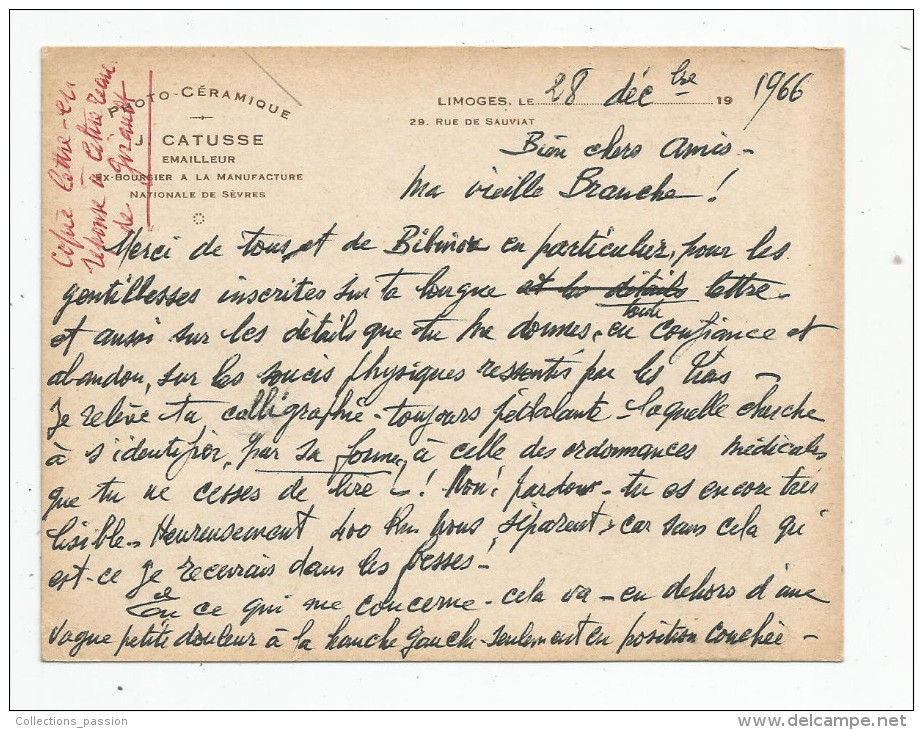 Copie lettre-en
réponse à lettre reçue
de
PHOTO-CÉRAMIQUE
J. CATUSSE
EMAILLEUR
EX-BOURSIER A LA MANUFACTURE
NATIONALE DE SÈVRES
LIMOGES, LE 28 déc bre 1966
29. RUE DE SAUVIAT
Bien chers Amis -
Ma vieille Branche !
Merci de tous et de en particulier, pour les
gentillesses inscrites sur ta longue et les détails lettre -
toute
et aussi sur les détails que tu me donnes, en confiance et
abandon, sur les soucis physiques ressentis par les
Je relève ta calligraphie - toujours pétalante - laquelle cherche
à s'identifier, par sa forme, à celle des ordonnances médicales
que tu ne cesses de lire - ! Non ! pardon - tu es encore très
lisible - Heureusement 400 Km nous séparent, car sans cela qu'
est-ce je recevrais dans les fesses !
En ce qui me concerne - cela va - en dehors d'une
vague petite douleur à la hanche gauche - seulement en position couchée -
Collections_passion
http://www.delcampe.net